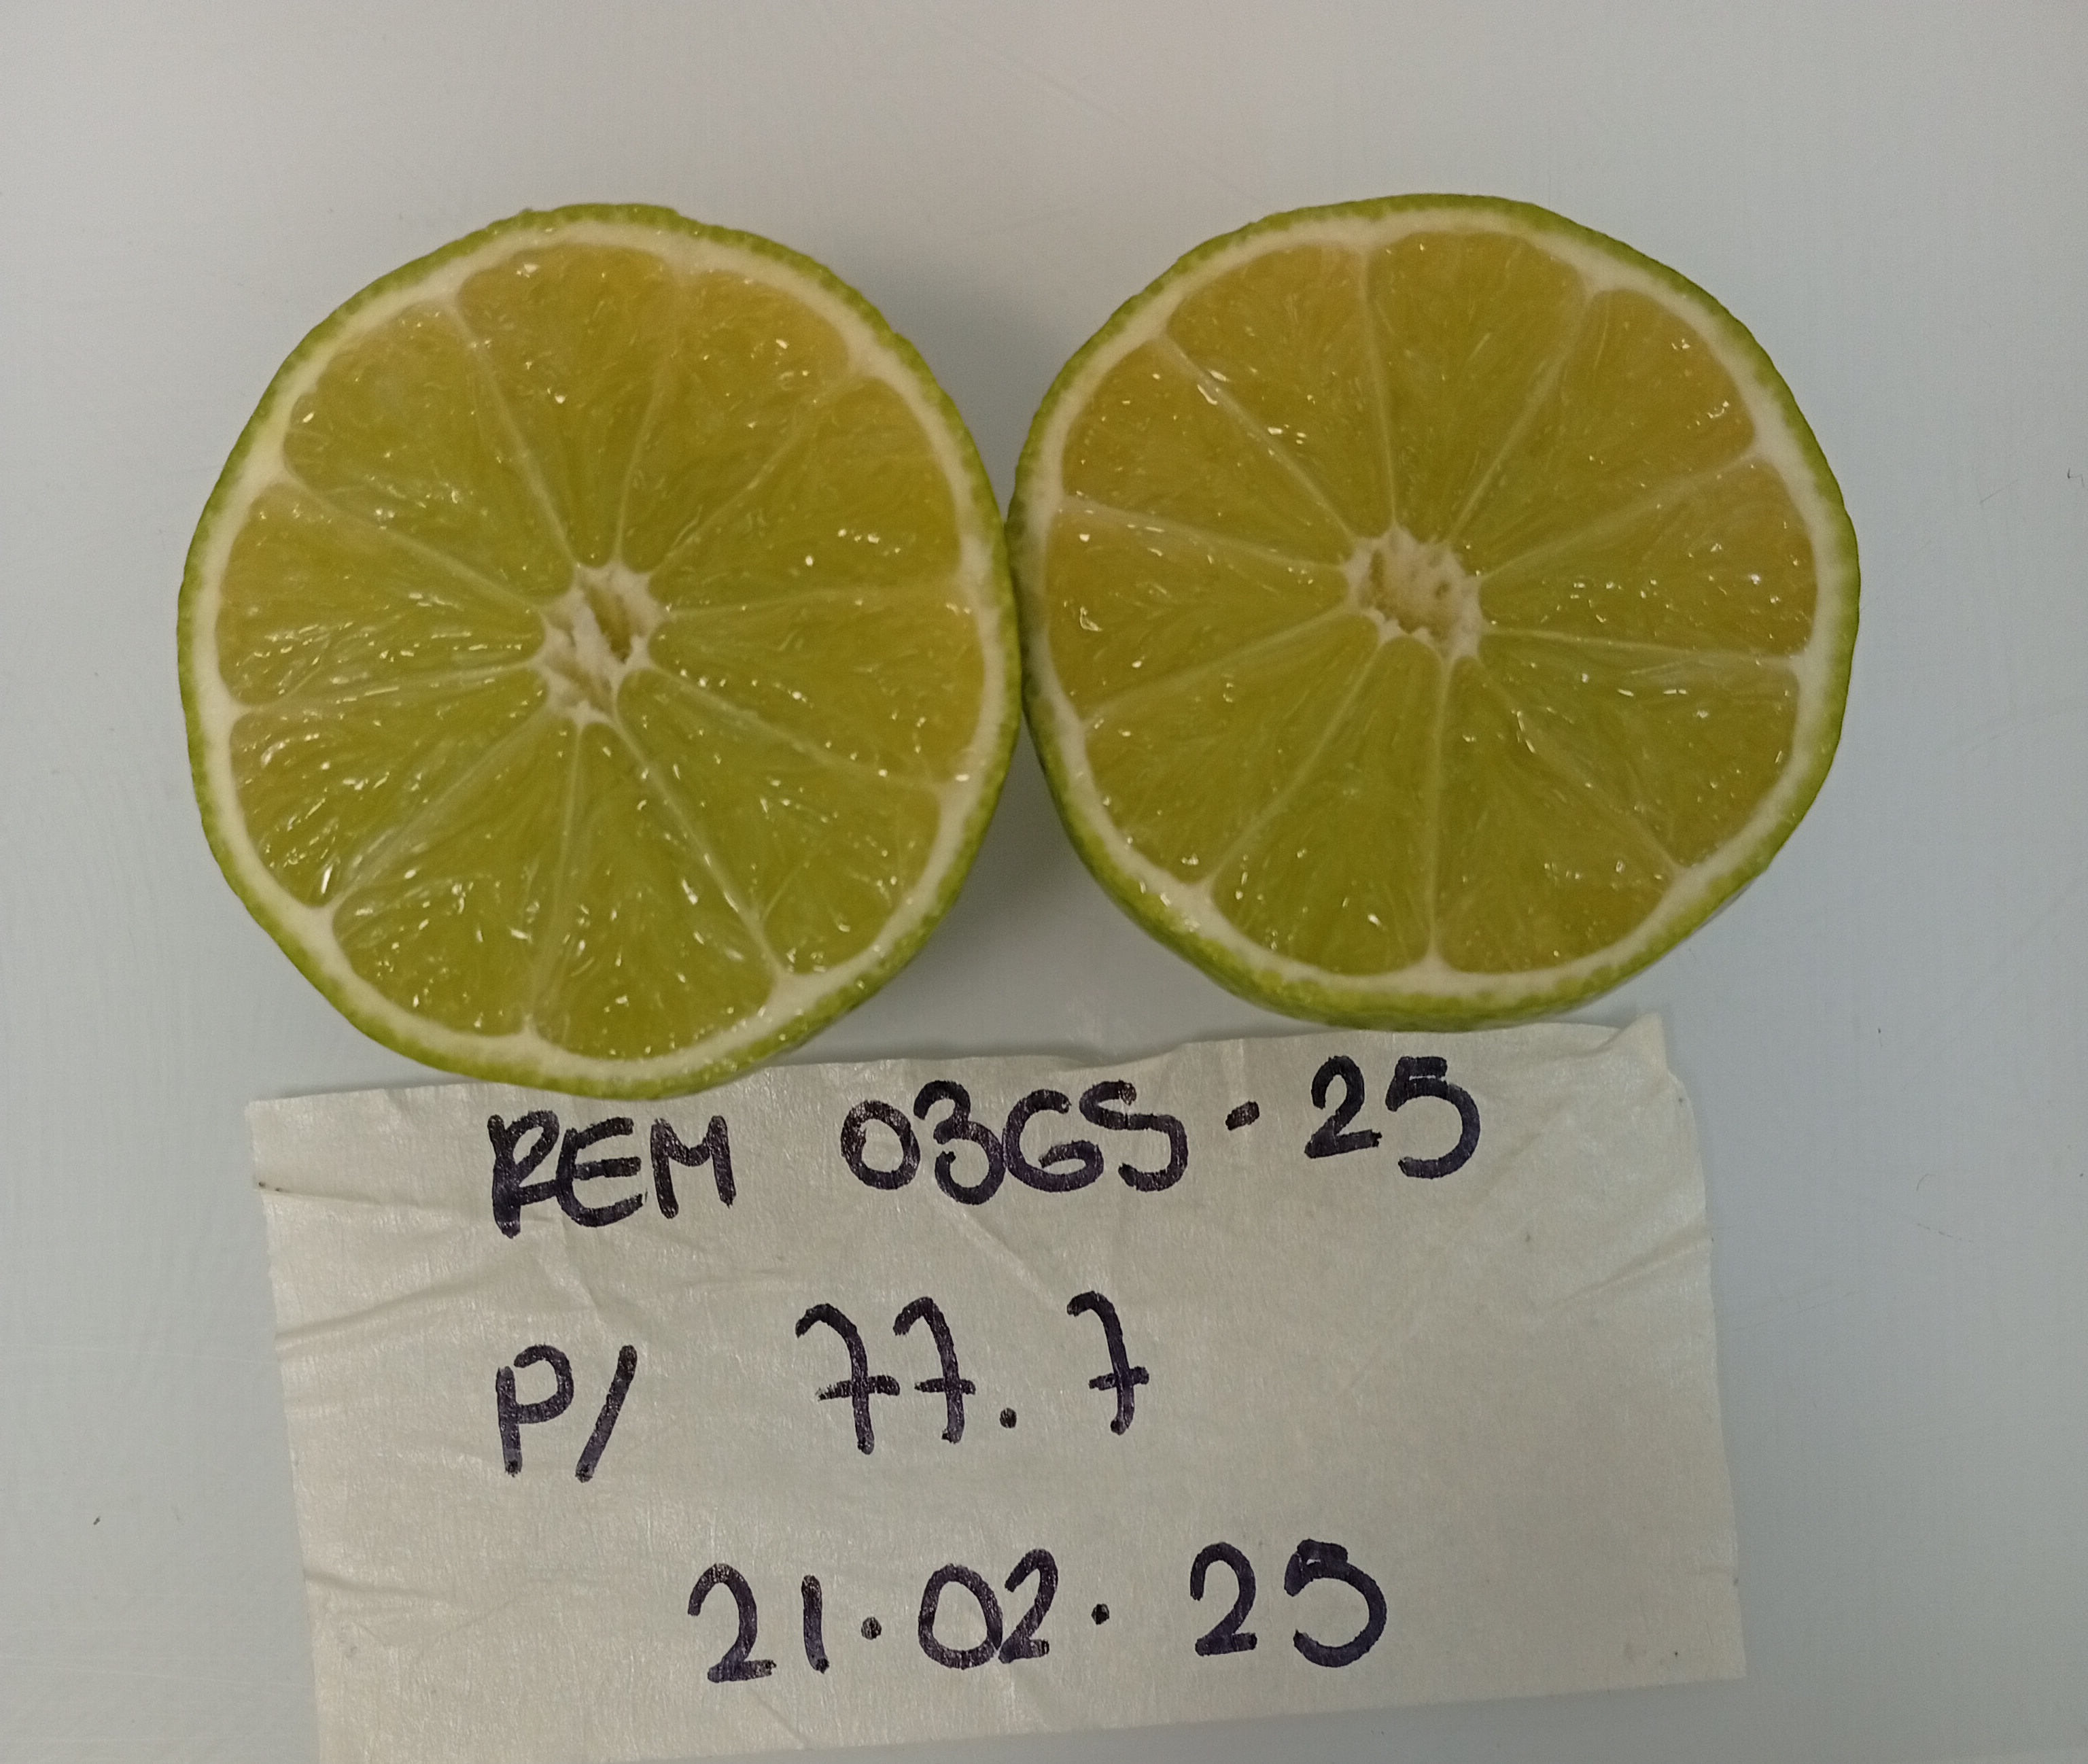 REM 03GS-25
P/ 77.7
21.02.25